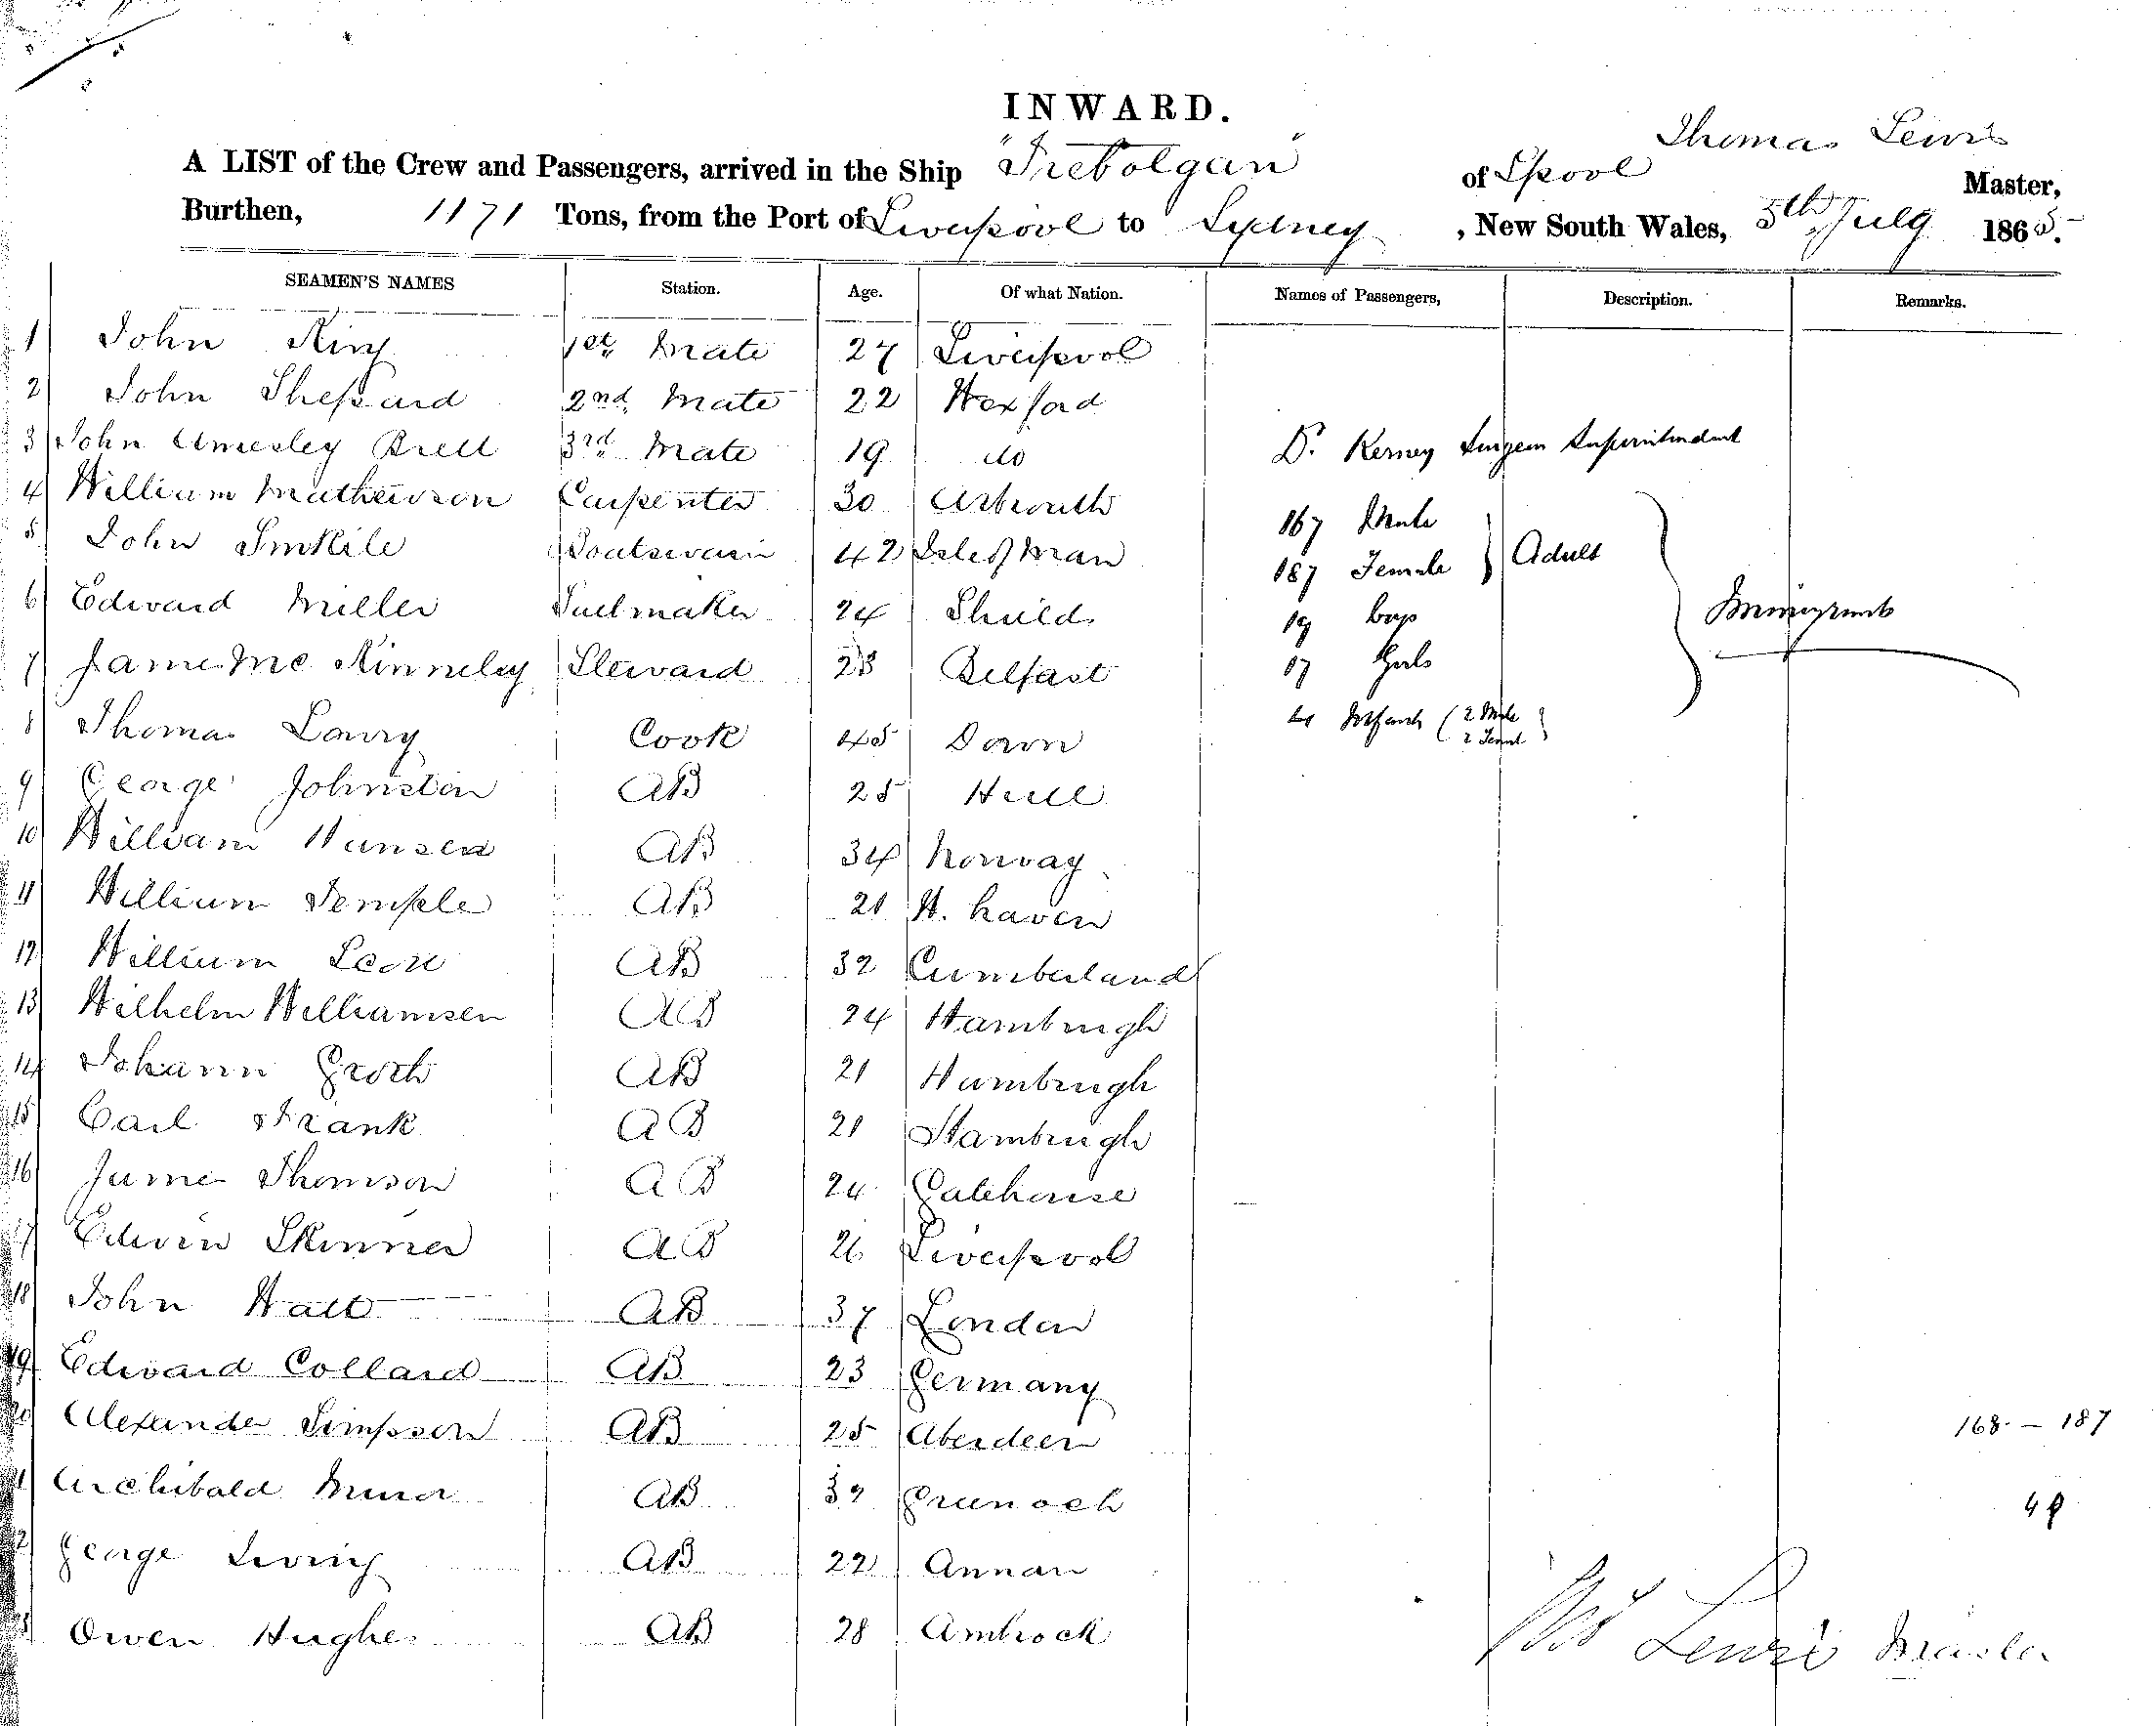 INWARD.
Thomas Lewis
A LIST of the Crew and Passengers, arrived in the Ship "Trebolgan" of Lpool Master,
Burthen, 1171 Tons, from the Port of Liverpool to Sydney, New South Wales, 5th July 1865.
SEAMEN'S NAMES Station. Age. Of what Nation. Names of Passengers, Description. Remarks.
1 John King 1st Mate 27 Liverpool
2 John Shepard 2nd Mate 22 Wexford
3 John Brell 3rd Mate 19 do
Dr. Kerney Surgeon Superintendent
4 William Mathewson Carpenter 30 Arbroath
167 Male
5 John Boatswain 42 Isle of Man
187 Female } Adult
6 Edward Miller Sailmaker 24 Shields
19 boys
Immigrants
7 James Mc Kinneley Steward 23 Belfast
17 Girls
8 Thomas Lowry Cook 45 Down
4 Infants ( 2 Male
2 Female )
9 George Johnston AB 25 Hull
10 William Hansen AB 34 Norway
11 William Temple AB 21 W. haven
12 William Leon AB 32 Cumberland
13 Wilhelm Williamsen AB 24 Hambrugh
14 Johann Groth AB 21 Hambrugh
15 Carl Frank AB 21 Hambrugh
16 James Thomson AB 24 Gatehouse
17 Edwin Skinner AB 26 Liverpool
18 John Watt AB 37 London
19 Edward Collard AB 23 Germany
20 Alexander Simpson AB 25 Aberdeen
168 - 187
21 Archibald AB 32 Greenock
22 George Irving AB 22 Annan
23 Owen Hughes AB 28 Ambrock
Lewis Master